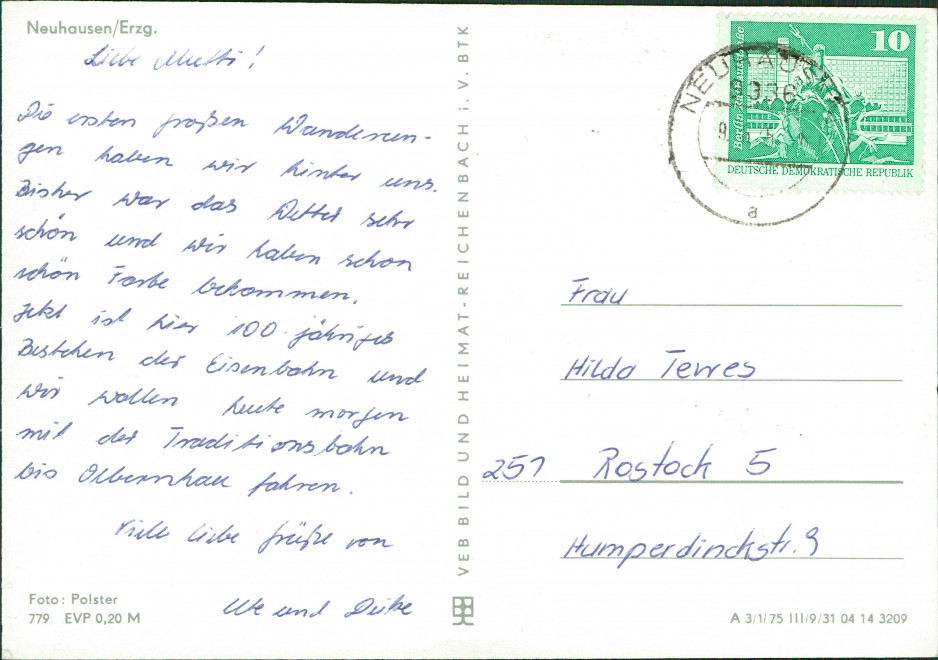 Neuhausen/Erzg.
Liebe Mutti!
Die ersten großen Wanderun-
gen haben wir hinter uns.
Bisher war das Wetter sehr
schön und wir haben schon
schön Farbe bekommen.
Jetzt ist hier 100-jähriges
Bestehen der Eisenbahn und
wir wollen heute morgen
mit der Traditionsbahn
bis Olbernhau fahren.
Viele liebe Grüße von
Ute und
Foto: Polster
779 EVP 0,20 M
VEB BILD UND HEIMAT-REICHENBACH i. V. BTK
10
Berlin Rathausstraße
DEUTSCHE DEMOKRATISCHE REPUBLIK
NEUHAUSEN
9336
a
Frau
Hilda Tewes
251 Rostock 5
Humperdinckstr. 9
A 3/1/75 III/9/31 04 14 3209